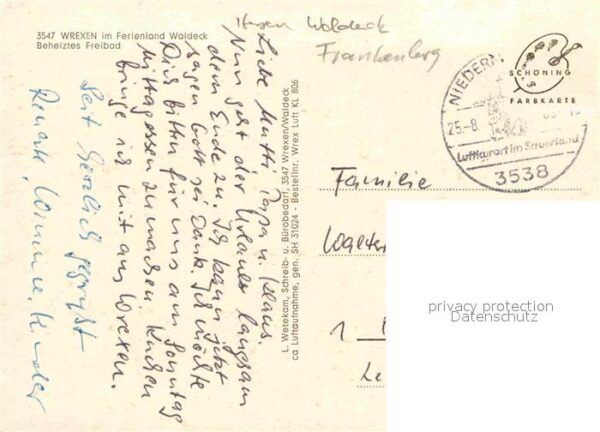 3547 WREXEN im Ferienland Waldeck
Beheiztes Freibad
Hessen Waldeck
Frankenberg
SCHÖNING
FARBKARTE
NIEDERM
25.-8.
Luftkurort im Sauerland
3538
Liebe Mutti Papa u. Klaus.
Nun geht der Urlaub langsam
dem Ende zu. Ich kann jetzt
sagen Gott sei Dank. Ich möchte
Dich bitten für uns am Sonntag
Mittagessen zu machen Kuchen
bringe ich mit aus Wrexen.
Seit herzlich gegrüßt
Renate, u. Kinder
L. Wetekam, Schreib- u. Bürobedarf, 3547 Wrexen/Waldeck
ca Luftaufnahme, gen. SH 31024 - Bestellnr. Wrex Luft KL 806
Familie
Walter
1
Le
privacy protection
Datenschutz